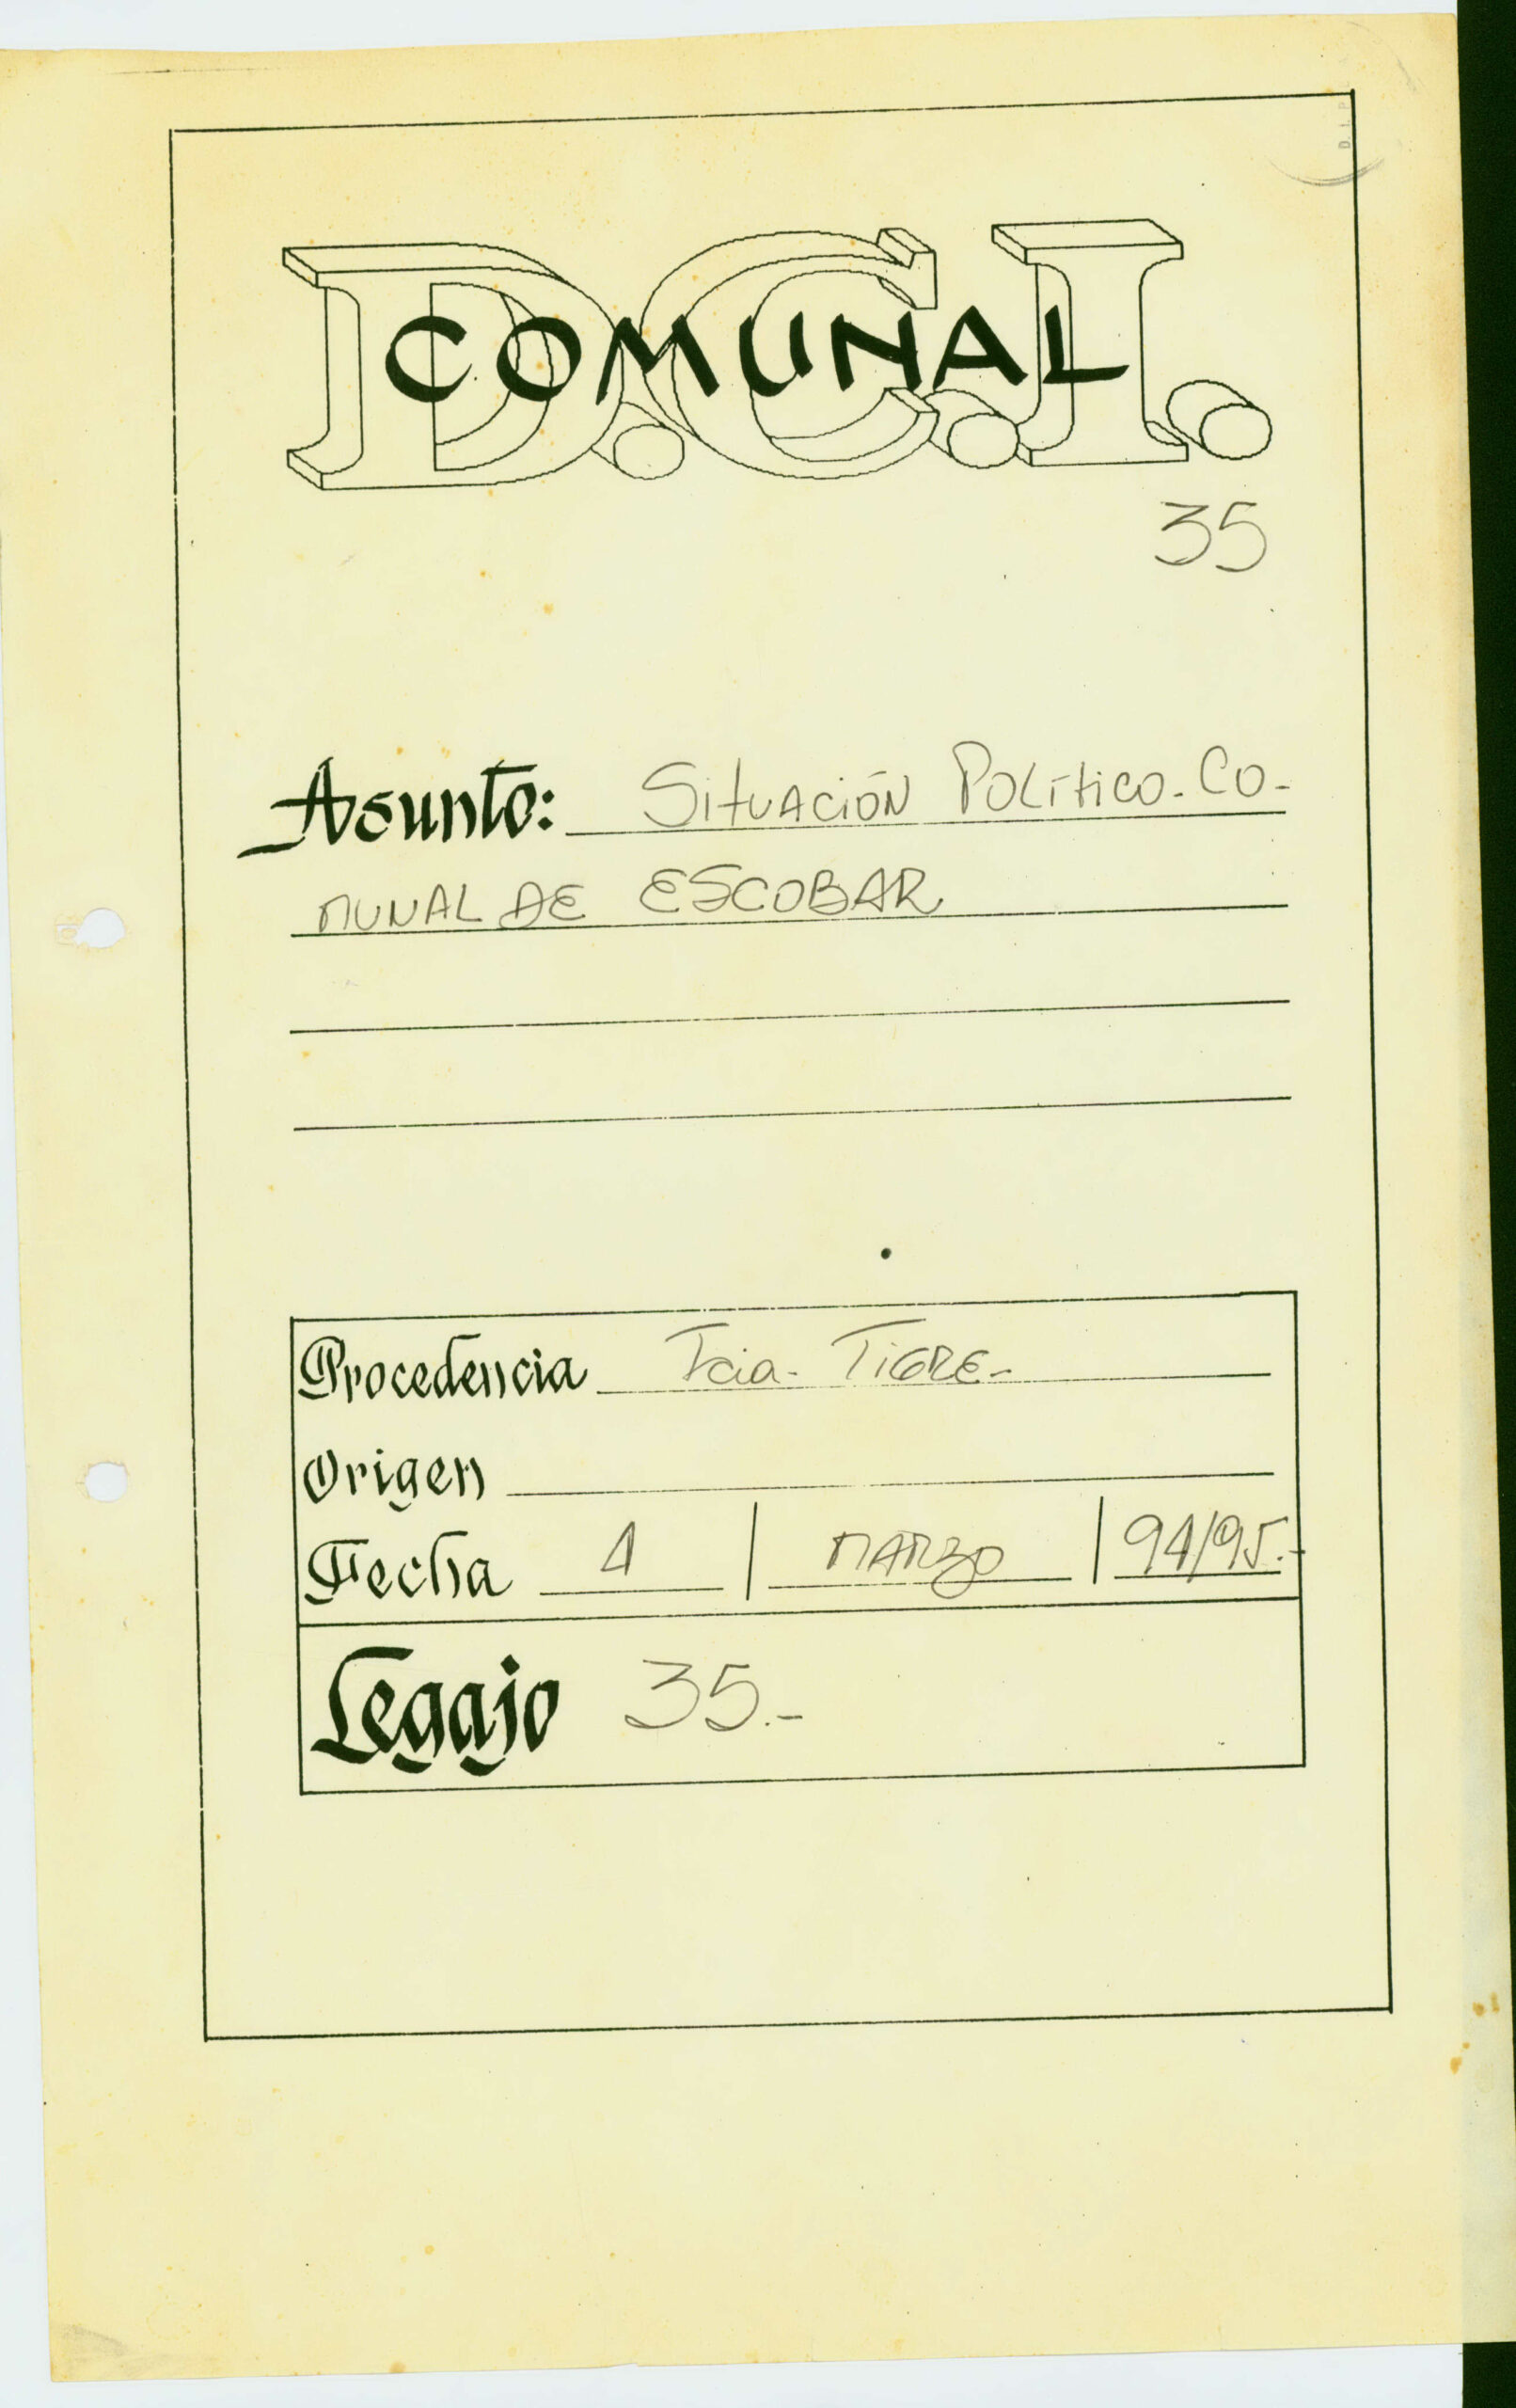 D.C.I.
COMUNAL
35
Asunto: Situación Político-Co-
munal de ESCOBAR
Procedencia Tigre-
Origen
Fecha 4 | MARZO | 94/95.-
Legajo 35.-